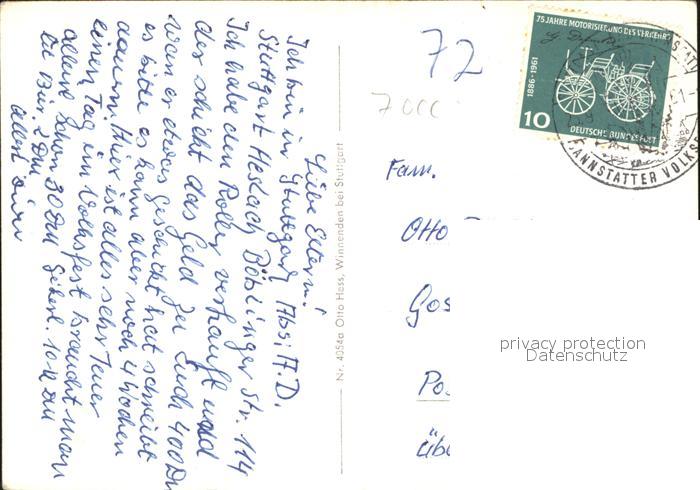 Liebe Eltern!
Ich bin in Stuttgart
Stuttgart Heslach Böblinger Str. 114
Ich habe den Roller verkauft und
der schickt das Geld zu Euch 400 DM
wen er etwas geschickt hat schreibt
es bitte es kann aber noch 4 Wochen
dauern. Hier ist alles sehr Teuer
einen Tag im Volksfest braucht man
alleine schon 30 DM
ein Bier 2 DM
Nr. 4054a Otto Hess, Winnenden bei Stuttgart
72
7000
75 JAHRE MOTORISIERUNG DES VERKEHRS
1886 · 1961
10
DEUTSCHE BUNDESPOST
CANNSTATTER VOLKSF
Fam.
Otto
Gos
Po
übe
privacy protection
Datenschutz